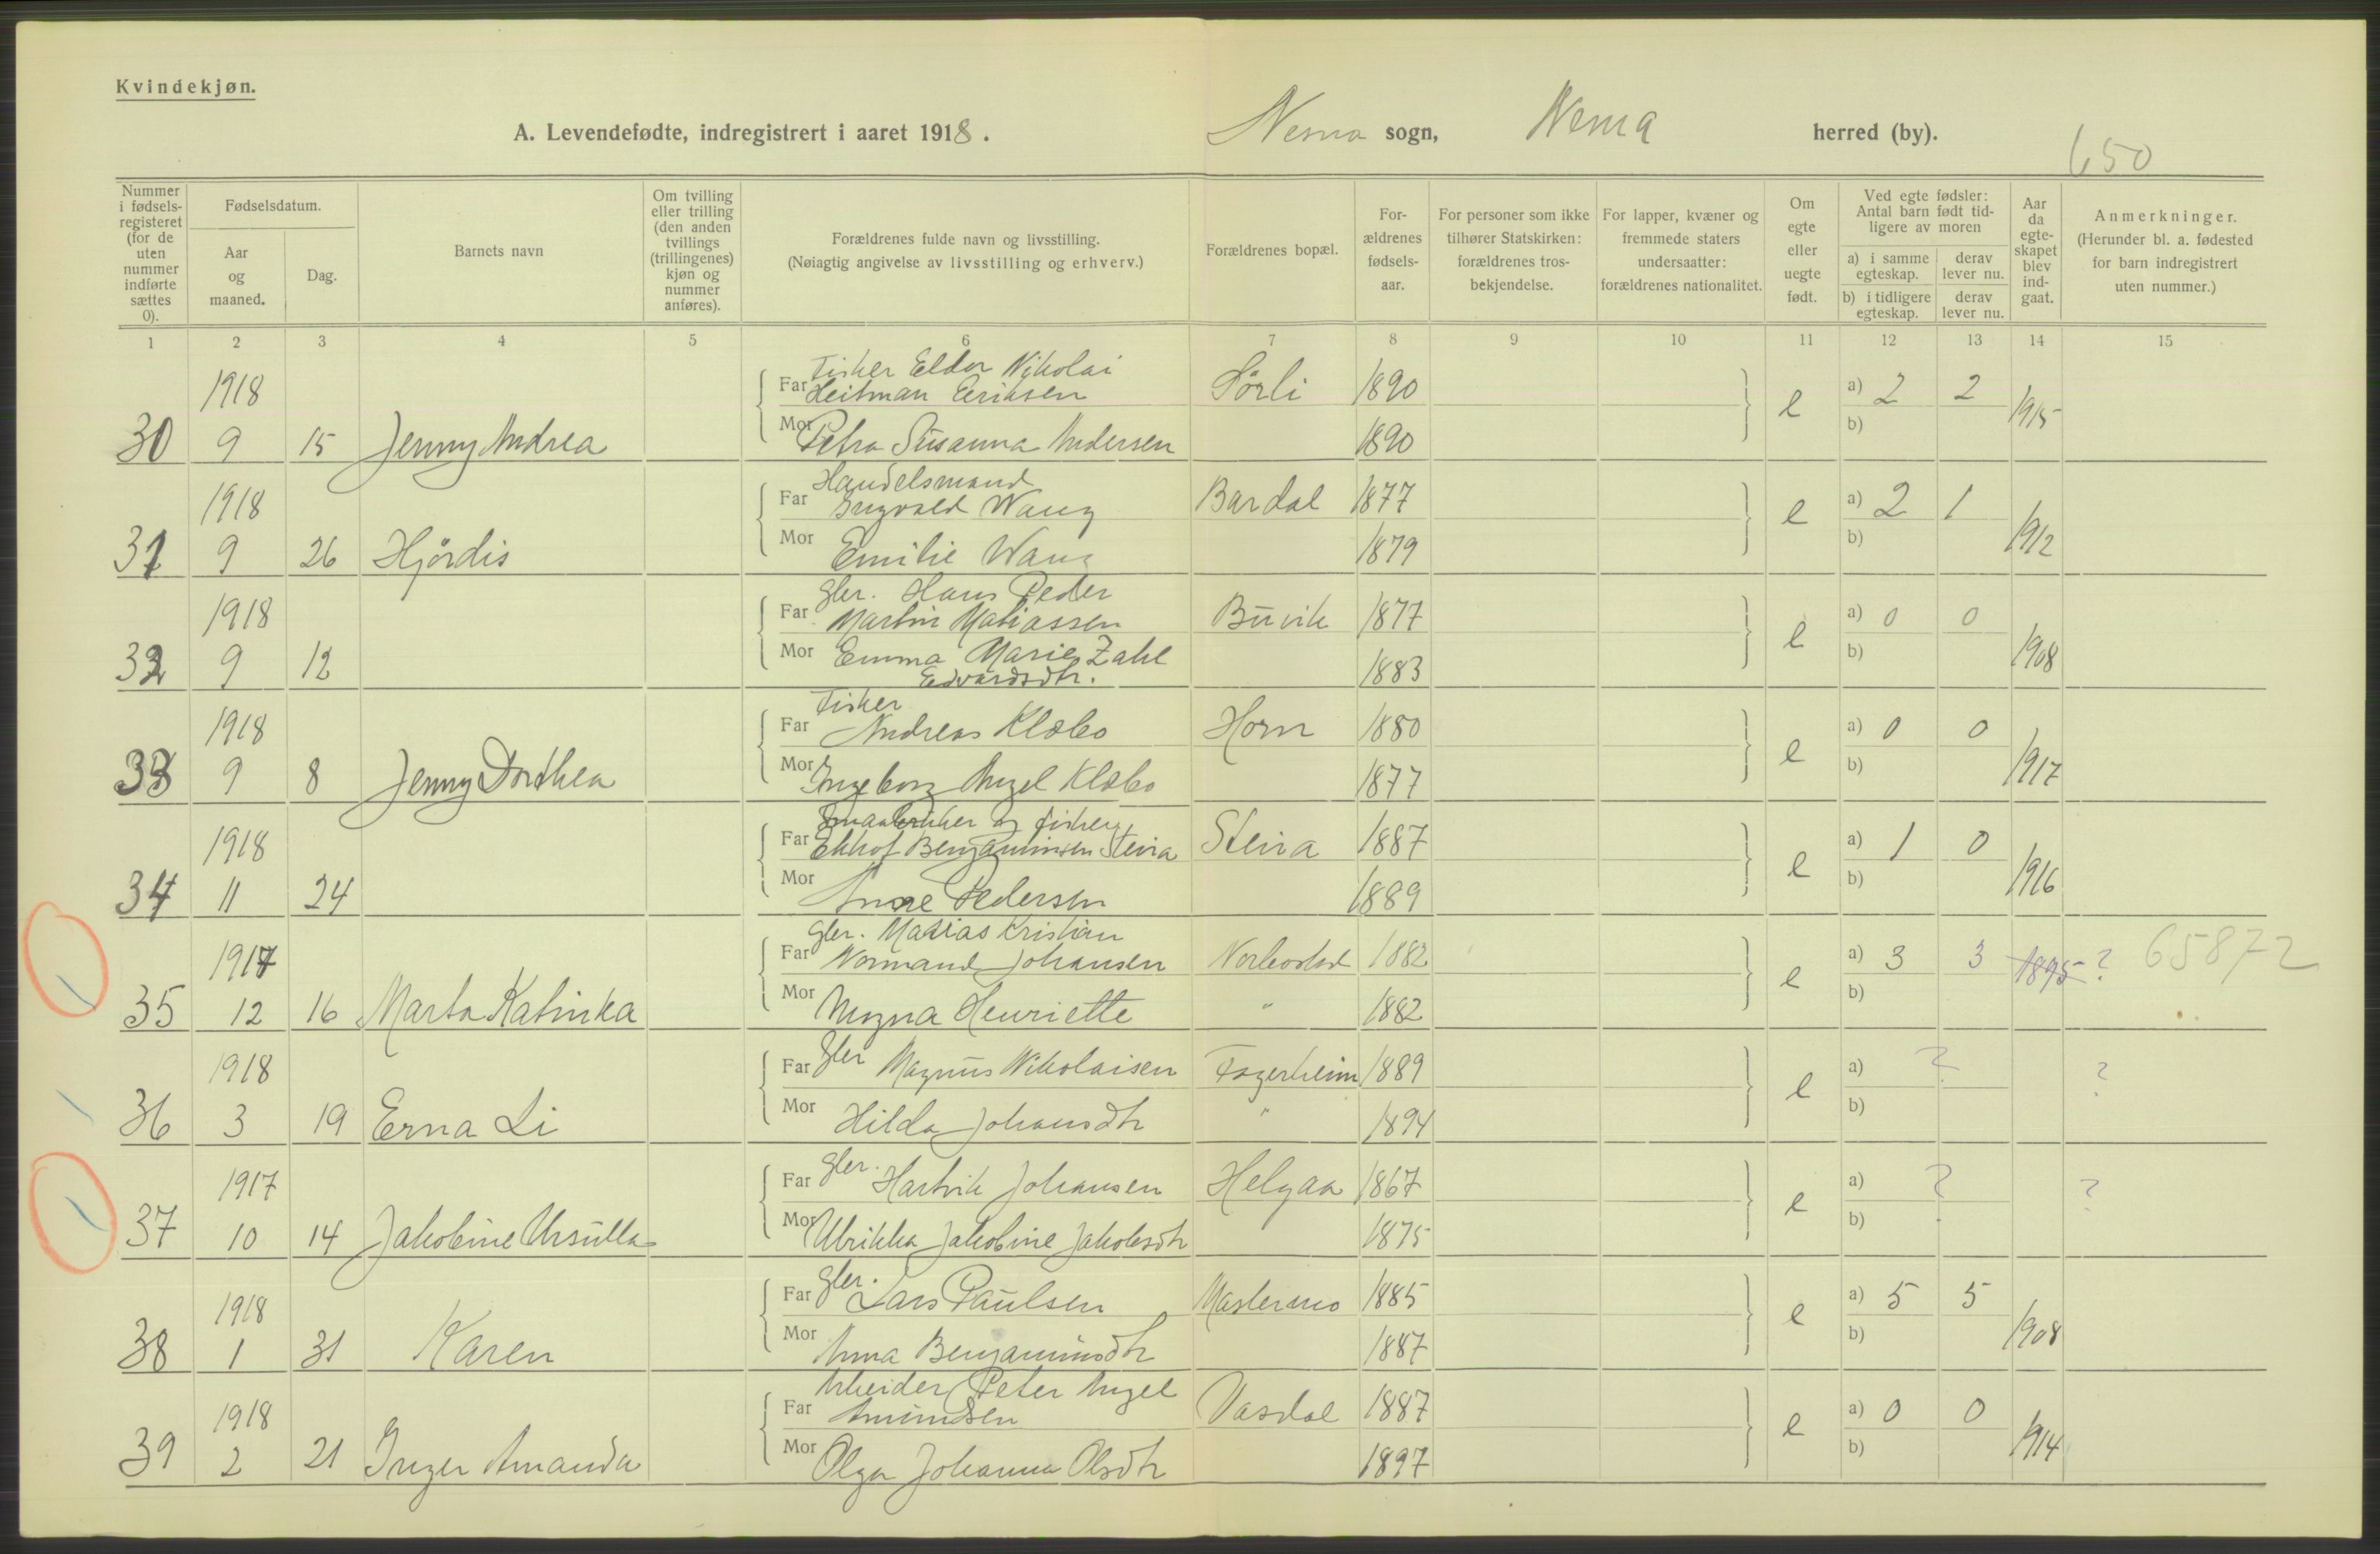 Kvindekjøn.
A. Levendefødte, indregistrert i aaret 1918. Nesna sogn, Nesna herred (by).
650
Nummer i fødselsregisteret (for de uten nummer indførte sættes 0).
Fødselsdatum.
Aar og maaned.
Dag.
Barnets navn
Om tvilling eller trilling (den anden tvillings (trillingenes) kjøn og nummer anføres).
Forældrenes fulde navn og livsstilling.
(Nøiagtig angivelse av livsstilling og erhverv.)
Forældrenes bopæl.
For-ældrenes fødsels-aar.
For personer som ikke tilhører Statskirken: forældrenes tros-bekjendelse.
For lapper, kvæner og fremmede staters undersaatter: forældrenes nationalitet.
Om egte eller uegte født.
Ved egte fødsler: Antal barn født tid-ligere av moren
a) i samme egteskap. derav lever nu.
b) i tidligere egteskap. derav lever nu.
Aar da egte-skapet blev ind-gaat.
Anmerkninger.
(Herunder bl. a. fødested for barn indregistrert uten nummer.)
1 2 3 4 5 6 7 8 9 10 11 12 13 14 15
Fisker Eldor Nikolai
1918 Far Heitman Eriksen Sörli 1890 e a) 2 2 1915
30 9 15 Jenny Andrea Mor Petra Susanna Andersen 1890 b)
Handelsmand
1918 Far Ingvald Wang Bardal 1877 e a) 2 1 1912
31 9 26 Hjördis Mor Emilie Wang 1879 b)
gbr. Hans Peder
1918 Far Martin Matiassen Buvik 1877 e a) 0 0 1908
32 9 12 Mor Emma Marie Zahl 1883 b)
Edvardsdtr.
Fisker
1918 Far Andreas Klæbo Horn 1880 e a) 0 0 1917
33 9 8 Jenny Dorthea Mor Ingeborg Angel Klæbo 1877 b)
Smaabruker og fisker
1918 Far Ekhof Benjaminsen Steira Steira 1887 e a) 1 0 1916
34 11 24 Mor Anne Pedersen 1889 b)
gbr. Matias Kristian
1917 Far Normand Johansen 1882 e a) 3 3 1895 ? 65872
35 12 16 Marta Katinka Mor Magna Henriette " 1882 b)
1918 Far gbr Magnus Nikolaisen Fagerheim 1889 e a) ? ?
36 3 19 Erna Li Mor Hilda Johansdtr " 1894 b)
1917 Far gbr. Hartvik Johansen Helgaa 1867 e a) ? ?
37 10 14 Jakobine Ursulla Mor Ulrikka Jakobine Jakobsdtr 1875 b)
1918 Far gbr. Lars Paulsen Mastermo 1885 e a) 5 5 1908
38 1 31 Karen Mor Anna Benjaminsdtr 1887 b)
Arbeider Peter Angel
1918 Far Amundsen Vasdal 1887 e a) 0 0 1914
39 2 21 Inger Amanda Mor Olga Johanna Olsdtr 1897 b)